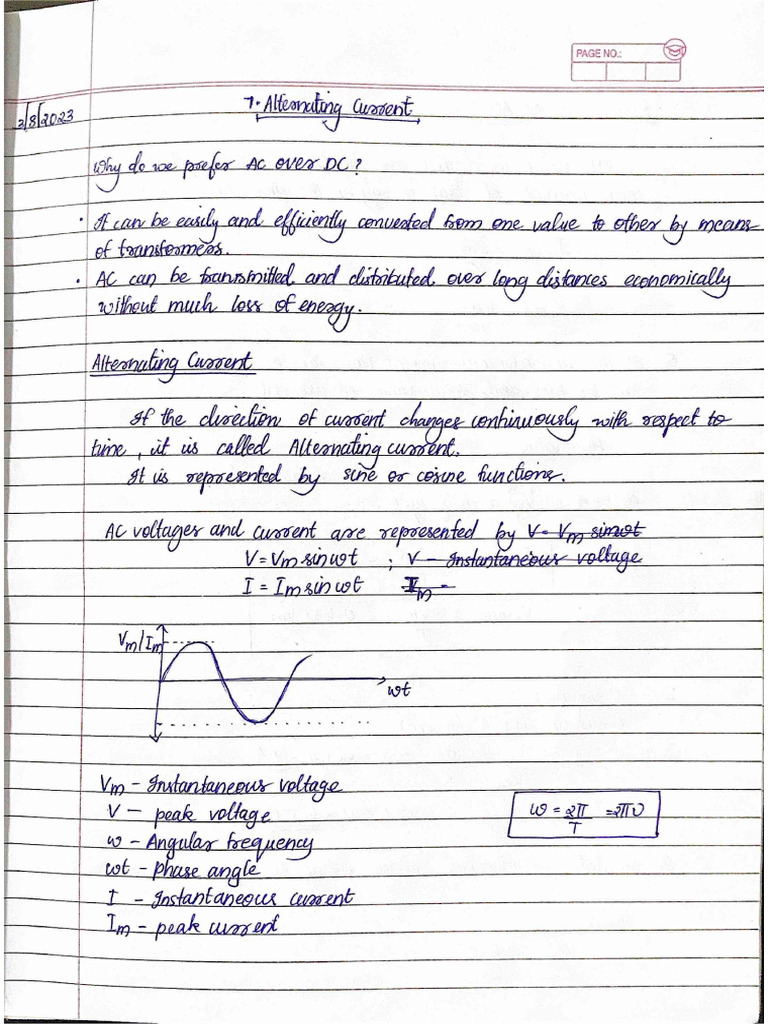 PAGE NO.:
3/8/2023
7. Alternating Current
Why do we prefer AC over DC?
• It can be easily and efficiently converted from one value to other by means
of transformers.
• AC can be transmitted and distributed over long distances economically
without much loss of energy.
Alternating Current
If the direction of current changes continuously with respect to
time, it is called Alternating current.
It is represented by sine or cosine functions.
AC voltages and current are represented by V = Vm sinωt
V = Vm sin ωt ; V - Instantaneous voltage
I = Im sin ωt Im -
Vm/Im
ωt
Vm - Instantaneous voltage
V - peak voltage
ω = 2π/T = 2πυ
ω - Angular frequency
ωt - phase angle
I - Instantaneous current
Im - peak current